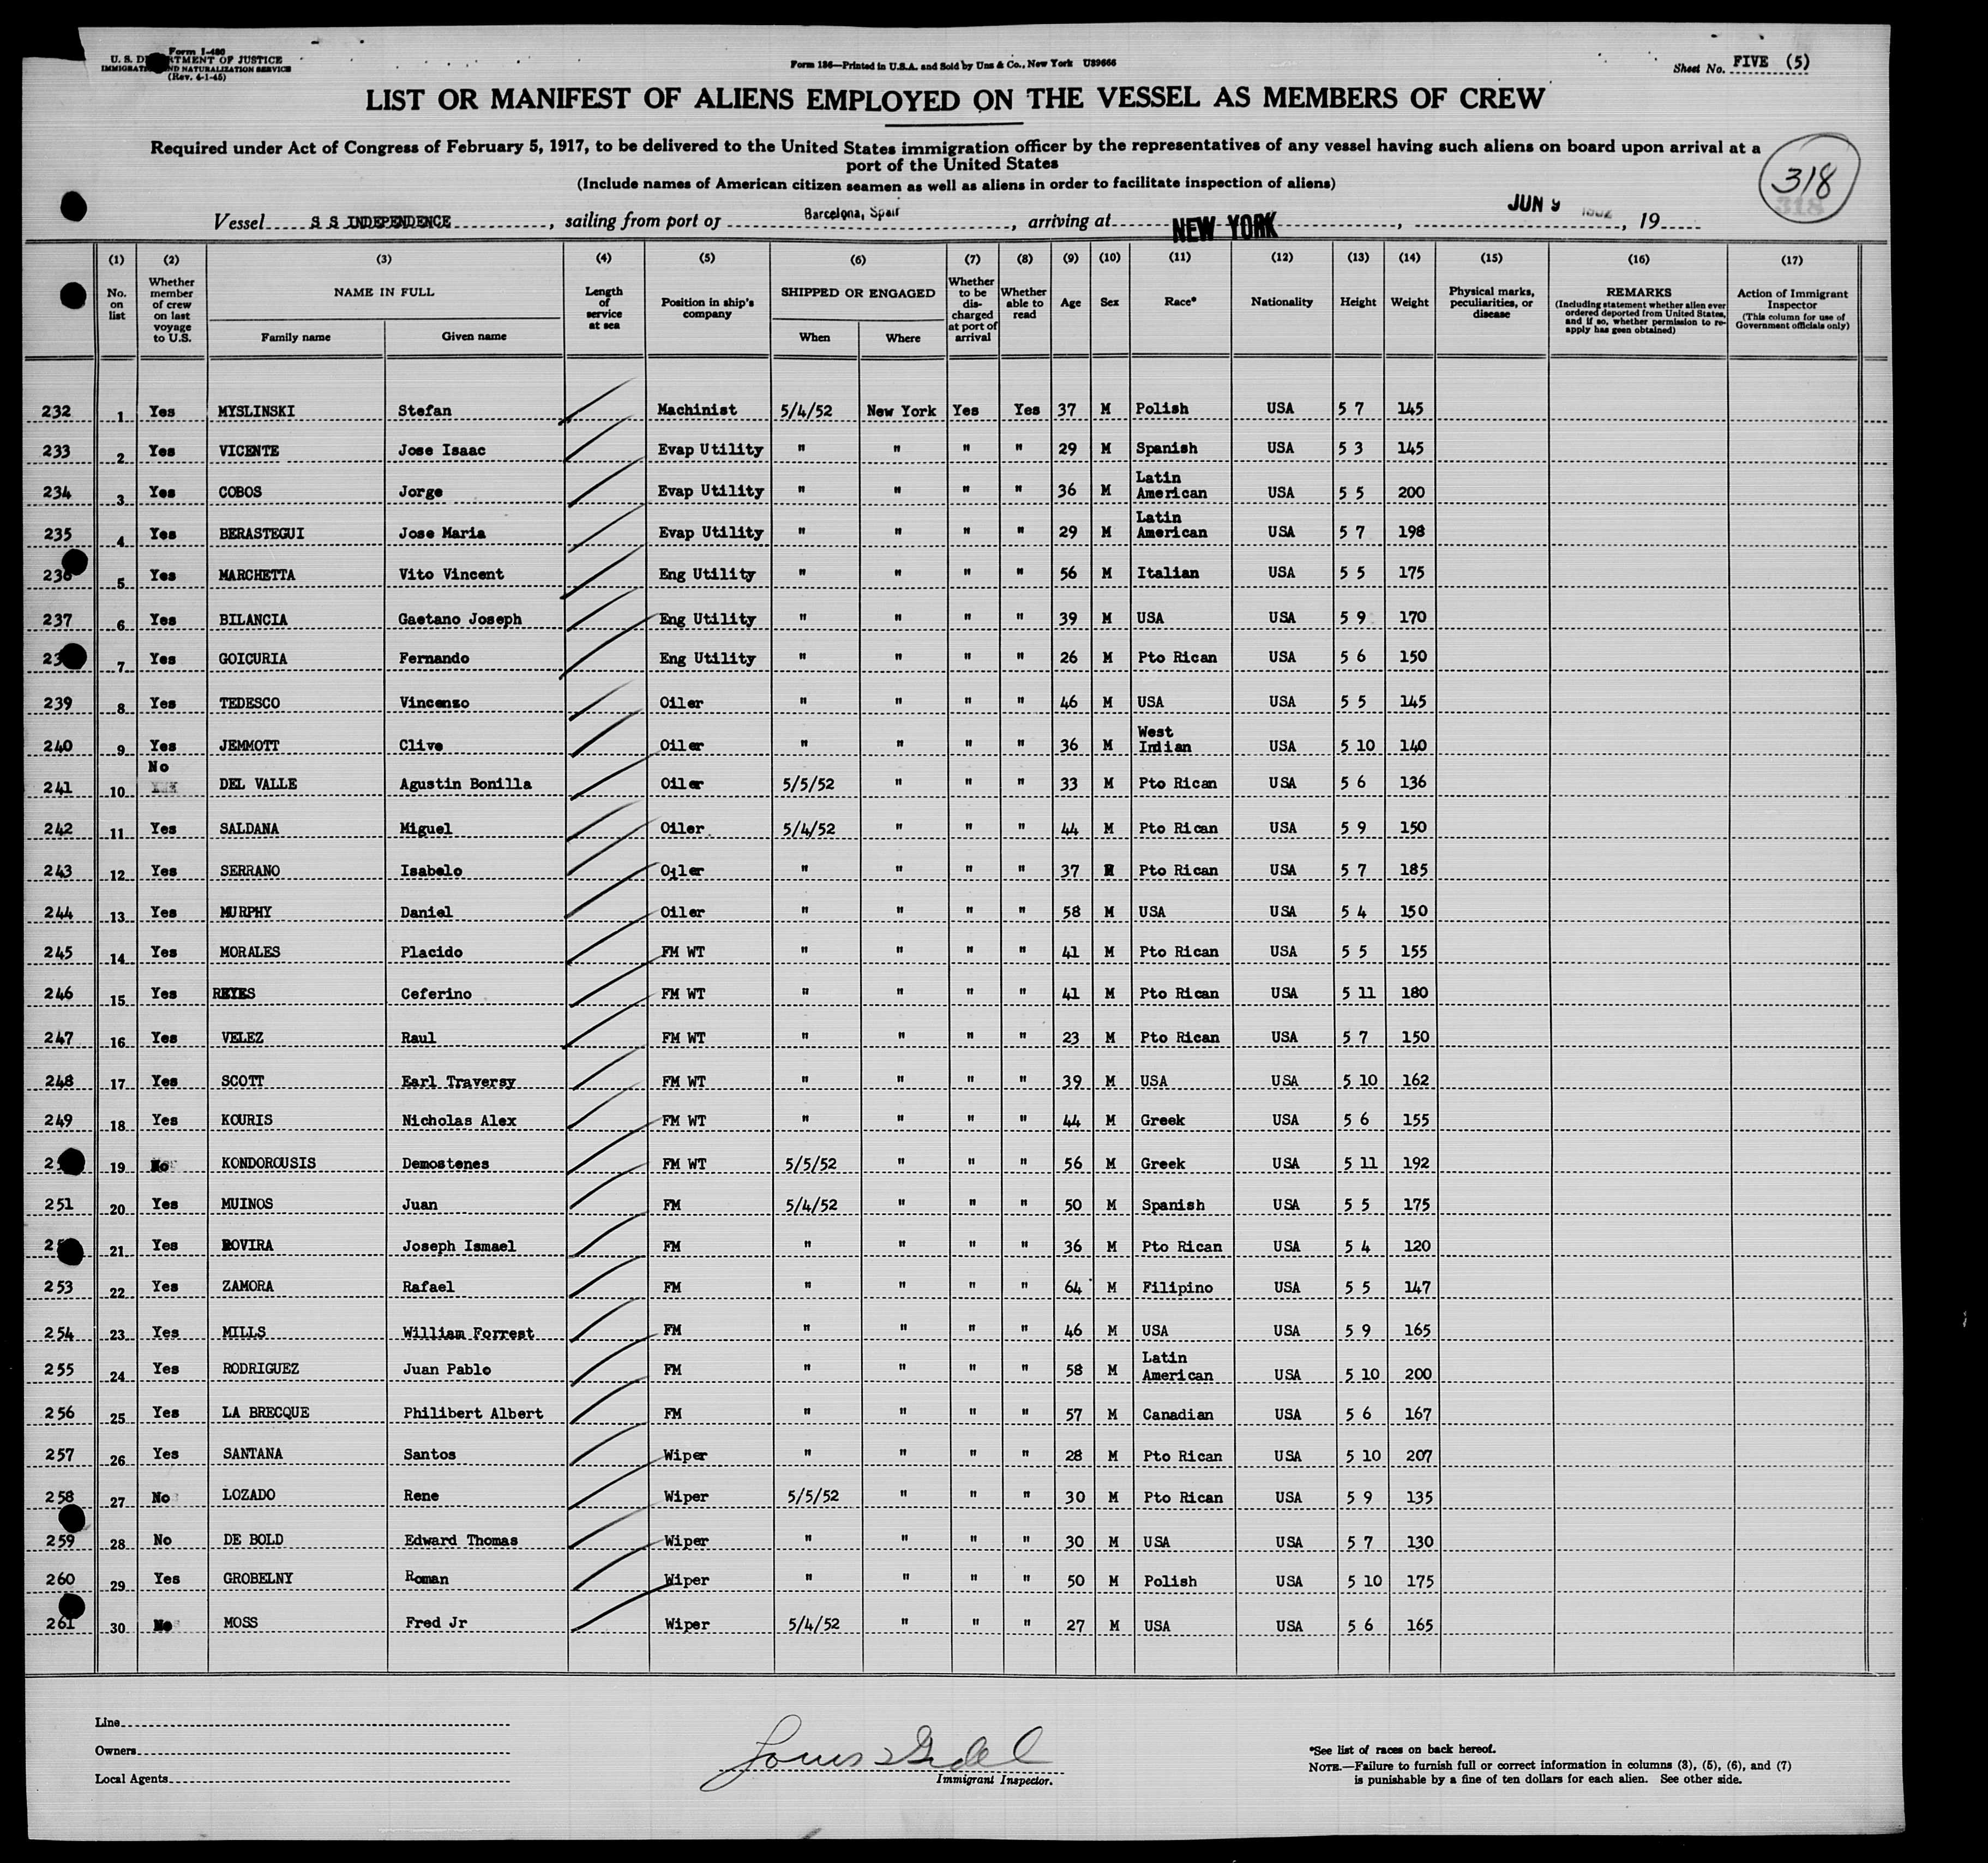 Form I-480
U. S. DE RTMENT OF JUSTICE
IMMIGRATI ND NATURALIZATION SERVICE
(Rev. 4-1-45)
Form 186—Printed in U.S.A. and Sold by Unz & Co., New York U89666
Sheet No. FIVE (5)
LIST OR MANIFEST OF ALIENS EMPLOYED ON THE VESSEL AS MEMBERS OF CREW
Required under Act of Congress of February 5, 1917, to be delivered to the United States immigration officer by the representatives of any vessel having such aliens on board upon arrival at a
port of the United States
318
318
(Include names of American citizen seamen as well as aliens in order to facilitate inspection of aliens)
Vessel S S INDEPENDENCE, sailing from port of Barcelona, Spain, arriving at NEW YORK, JUN 9 1952, 19
(1) (2) (3) (4) (5) (6) (7) (8) (9) (10) (11) (12) (13) (14) (15) (16) (17)
No. on list
Whether member of crew on last voyage to U.S.
NAME IN FULL
Family name
Given name
Length of service at sea
Position in ship's company
SHIPPED OR ENGAGED
When
Where
Whether to be discharged at port of arrival
Whether able to read
Age
Sex
Race*
Nationality
Height
Weight
Physical marks, peculiarities, or disease
REMARKS
(Including statement whether alien ever ordered deported from United States, and if so, whether permission to re-apply has been obtained)
Action of Immigrant Inspector
(This column for use of Government officials only)
232 1 Yes MYSLINSKI Stefan Machinist 5/4/52 New York Yes Yes 37 M Polish USA 5 7 145
233 2 Yes VICENTE Jose Isaac Evap Utility " " " " 29 M Spanish USA 5 3 145
234 3 Yes COBOS Jorge Evap Utility " " " " 36 M Latin American USA 5 5 200
235 4 Yes BERASTEGUI Jose Maria Evap Utility " " " " 29 M Latin American USA 5 7 198
236 5 Yes MARCHETTA Vito Vincent Eng Utility " " " " 56 M Italian USA 5 5 175
237 6 Yes BILANCIA Gaetano Joseph Eng Utility " " " " 39 M USA USA 5 9 170
23 7 Yes GOICURIA Fernando Eng Utility " " " " 26 M Pto Rican USA 5 6 150
239 8 Yes TEDESCO Vincenzo Oiler " " " " 46 M USA USA 5 5 145
240 9 Yes JEMMOTT Clive Oiler " " " " 36 M West Indian USA 5 10 140
241 10 No DEL VALLE Agustin Bonilla Oiler 5/5/52 " " " 33 M Pto Rican USA 5 6 136
242 11 Yes SALDANA Miguel Oiler 5/4/52 " " " 44 M Pto Rican USA 5 9 150
243 12 Yes SERRANO Isabelo Oiler " " " " 37 M Pto Rican USA 5 7 185
244 13 Yes MURPHY Daniel Oiler " " " " 58 M USA USA 5 4 150
245 14 Yes MORALES Placido FM WT " " " " 41 M Pto Rican USA 5 5 155
246 15 Yes REYES Ceferino FM WT " " " " 41 M Pto Rican USA 5 11 180
247 16 Yes VELEZ Raul FM WT " " " " 23 M Pto Rican USA 5 7 150
248 17 Yes SCOTT Earl Traversy FM WT " " " " 39 M USA USA 5 10 162
249 18 Yes KOURIS Nicholas Alex FM WT " " " " 44 M Greek USA 5 6 155
2 19 No KONDOROUSIS Demostenes FM WT 5/5/52 " " " 56 M Greek USA 5 11 192
251 20 Yes MUINOS Juan FM 5/4/52 " " " 50 M Spanish USA 5 5 175
25 21 Yes ROVIRA Joseph Ismael FM " " " " 36 M Pto Rican USA 5 4 120
253 22 Yes ZAMORA Rafael FM " " " " 64 M Filipino USA 5 5 147
254 23 Yes MILLS William Forrest FM " " " " 46 M USA USA 5 9 165
255 24 Yes RODRIGUEZ Juan Pablo FM " " " " 58 M Latin American USA 5 10 200
256 25 Yes LA BRECQUE Philibert Albert FM " " " " 57 M Canadian USA 5 6 167
257 26 Yes SANTANA Santos Wiper " " " " 28 M Pto Rican USA 5 10 207
258 27 No LOZADO Rene Wiper 5/5/52 " " " 30 M Pto Rican USA 5 9 135
259 28 No DE BOLD Edward Thomas Wiper " " " " 30 M USA USA 5 7 130
260 29 Yes GROBELNY Roman Wiper " " " " 50 M Polish USA 5 10 175
261 30 No MOSS Fred Jr Wiper 5/4/52 " " " 27 M USA USA 5 6 165
Line
Owners
Local Agents
Louis
Immigrant Inspector.
*See list of races on back hereof.
NOTE.—Failure to furnish full or correct information in columns (3), (5), (6), and (7)
is punishable by a fine of ten dollars for each alien. See other side.